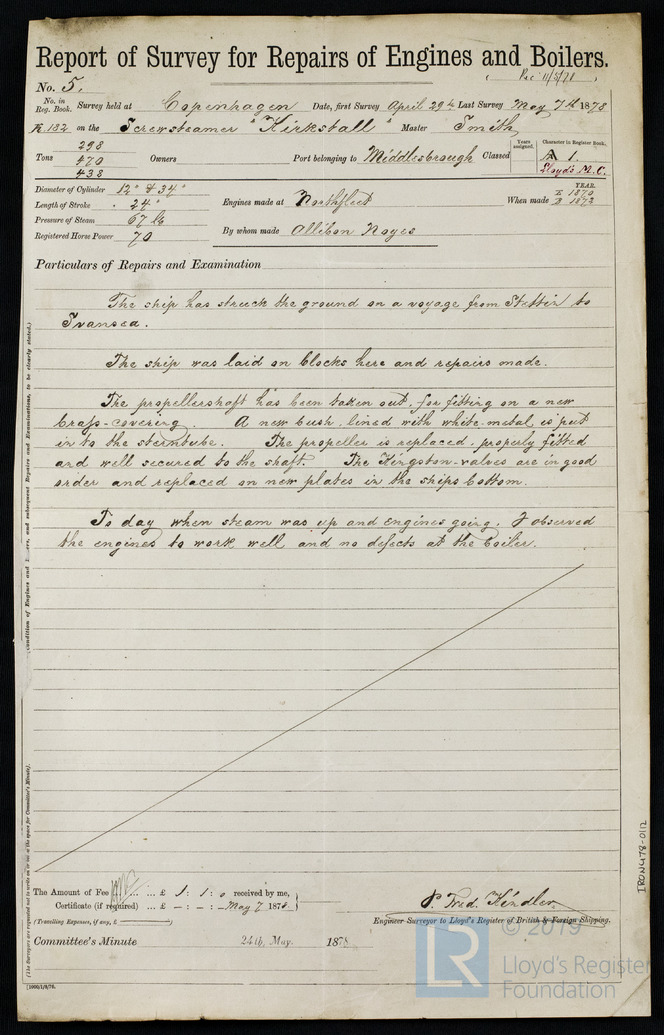 Report of Survey for Repairs of Engines and Boilers.
Rec 11/5/78
No. 5.
No. in Reg. Book. Survey held at Copenhagen Date, first Survey April 29th Last Survey May 7th 1878
K 182 on the Screwsteamer "Kirkstall" Master Smith
Tons 298 470 438 Owners Port belonging to Middlesbrough Classed Years assigned. Character in Register Book. A 1. Lloyd's M.C.
Diameter of Cylinder 12" & 34"
Length of Stroke 24"
Pressure of Steam 67 lb
Registered Horse Power 70
Engines made at Northfleet
By whom made Allibon Noyes
YEAR.
When made E 1870
B 1872
Particulars of Repairs and Examination
The ship has struck the ground on a voyage from Stettin to
Svansea.
The ship was laid on blocks here and repairs made.
The propellershaft has been taken out, for fitting on a new
brass-covering. A new bush, lined with white-metal, is put
in to the sterntube. The propeller is replaced, properly fitted
and well secured to the shaft. The Kingston-valves are in good
order and replaced on new plates in the ships bottom.
To day when steam was up and engines going, I observed
the engines to work well and no defects at the boiler.
The Amount of Fee ... ... £ 1 : 1 : 0 received by me,
Certificate (if required) ... £ – : – : – May 7 1878.
(Travelling Expenses, if any, £ )
P. Fred. Kindler.
Engineer Surveyor to Lloyd's Register of British & Foreign Shipping.
Committee's Minute 24th May 1878
[1000/1/9/76.
(The Surveyors are requested not to write on or below the space for Committee's Minute).
Condition of Engines and Boilers, and subsequent Repairs and Examinations, to be clearly stated.)
IRON478-0112
© 2019
LR
Lloyd's Register
Foundation